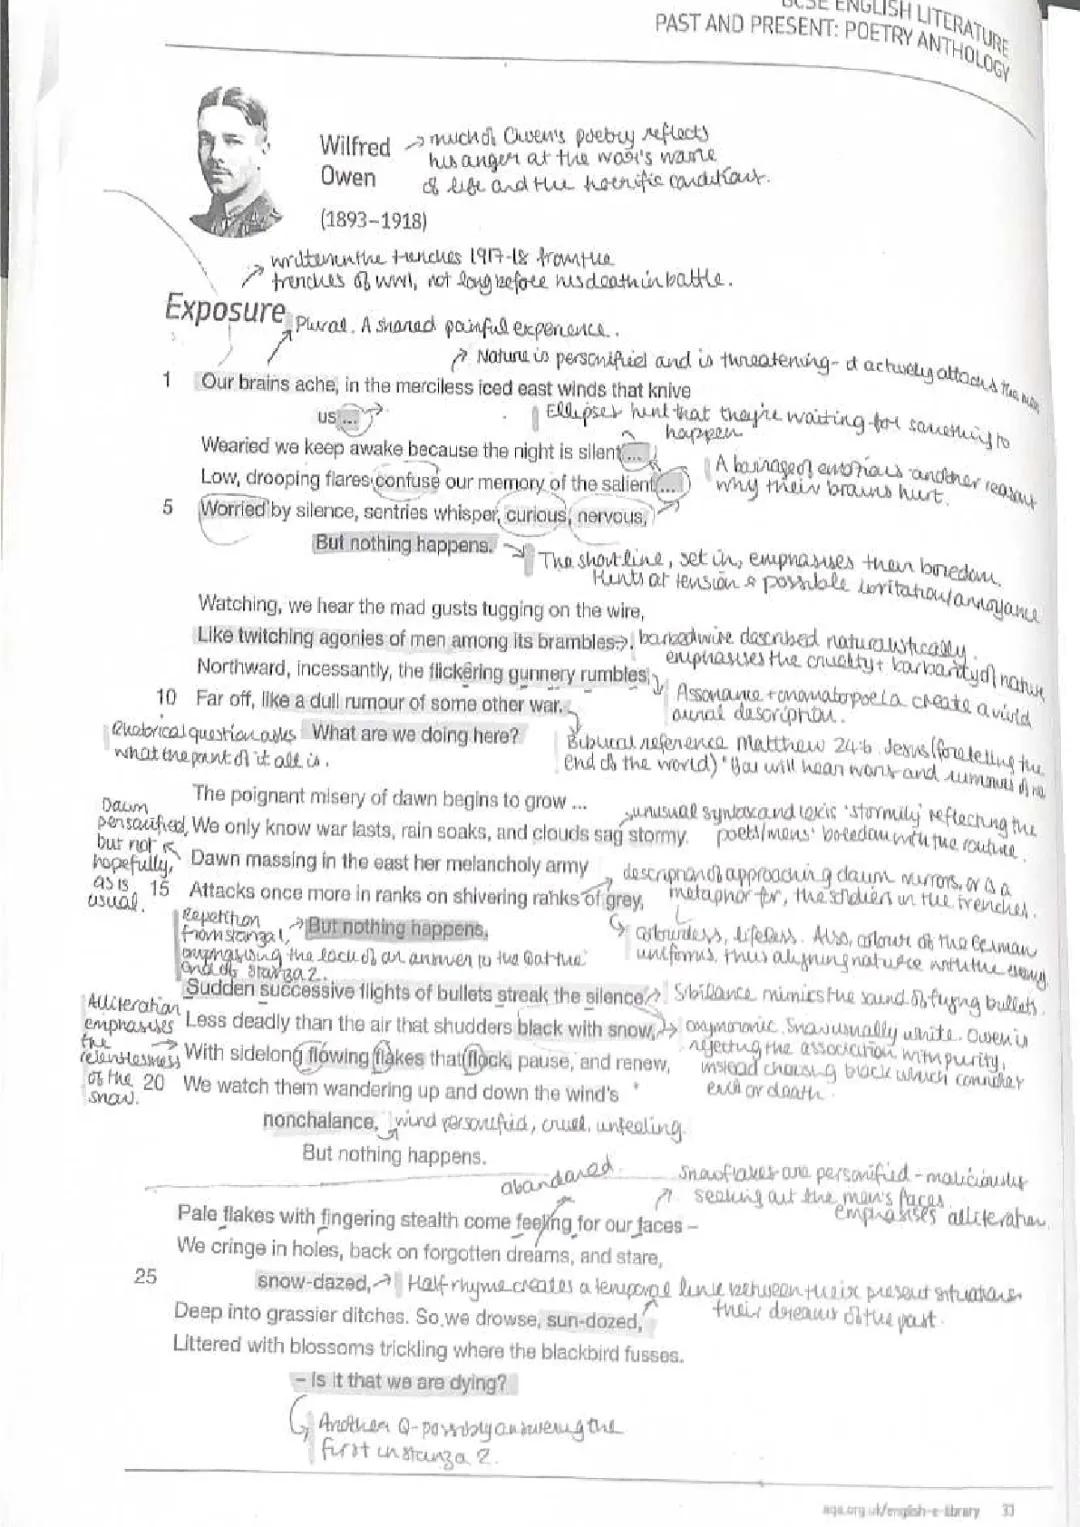 GCSE ENGLISH LITERATURE
PAST AND PRESENT: POETRY ANTHOLOGY
Wilfred
Owen
(1893–1918)
→ much of Owen's poetry reflects
his anger at the war's waste
of life and the horrific conditions.
→ written in the trenches 1917-18 from the
trenches of WWI, not long before his death in battle.
Exposure
Plural. A shared painful experience.
Nature is personified and is threatening - it actively attacks the men
1 Our brains ache, in the merciless iced east winds that knive
us ...
Ellipses hint that they're waiting for something to
happen
Wearied we keep awake because the night is silent ...
Low, drooping flares confuse our memory of the salient ...
A barrage of emotions another reason
why their brains hurt.
5 Worried by silence, sentries whisper, curious, nervous,
But nothing happens.
The short line, set in, emphasises their boredom.
Hints at tension & possible irritation/annoyance
Watching, we hear the mad gusts tugging on the wire,
Like twitching agonies of men among its brambles.
barbed wire described naturalistically.
emphasises the cruelty + barbarity of nature
Northward, incessantly, the flickering gunnery rumbles,
Assonance + onomatopoeia create a vivid
aural description.
10 Far off, like a dull rumour of some other war.
What are we doing here?
Rhetorical question asks
what the point of it all is.
Biblical reference Matthew 24:6. Jesus (foretelling the
end of the world) 'You will hear wars and rumours of
The poignant misery of dawn begins to grow ...
unusual syntax and lexis 'stormy' reflecting the
poets/mens' boredom with the routine.
We only know war lasts, rain soaks, and clouds sag stormy.
Dawn
personified,
but not
hopefully,
as is
usual.
Dawn massing in the east her melancholy army
description of approaching dawn mirrors, or is a
metaphor for, the soldiers in the trenches.
15 Attacks once more in ranks on shivering ranks of grey,
But nothing happens.
Repetition
from stanza 1,
emphasising the lack of an answer to the Q at the
end of stanza 2.
colourless, lifeless. Also, colour of the German
uniforms, thus aligning nature with the enemy
Sudden successive flights of bullets streak the silence.
Sibilance mimics the sound of flying bullets.
Less deadly than the air that shudders black with snow,
oxymoronic. Snow usually white. Owen is
rejecting the association with purity,
instead choosing black which connotes
evil or death.
Alliteration
emphasises
the
relentlessness
of the
snow.
With sidelong flowing flakes that flock, pause, and renew,
20 We watch them wandering up and down the wind's
nonchalance,
wind personified, cruel, unfeeling.
But nothing happens.
abandoned.
Snowflakes are personified - maliciously
seeking out the men's faces.
emphasises alliteration.
Pale flakes with fingering stealth come feeling for our faces –
We cringe in holes, back on forgotten dreams, and stare,
25 snow-dazed,
Half rhyme creates a temporal link between their present situation &
their dreams of the past.
Deep into grassier ditches. So we drowse, sun-dozed,
Littered with blossoms trickling where the blackbird fusses.
– Is it that we are dying?
Another Q - possibly answering the
first in stanza 2.
aqa.org.uk/english-e-library 33